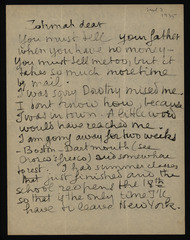 Zahmah dear
You must tell your father
when you have no money -
You must tell me too, but it
takes so much more time
by mail.
I was sorry Dorothy missed me
I don't know how, because
I was in town. A little word
would have reached me.
I am going away for two weeks
- Boston - Dartmouth (see
Orozco frescoes) and somewhere
to rest - I has summer classes
that just finished and the
school reopens the 18th
so that is the only time I'll
have to leave New York.